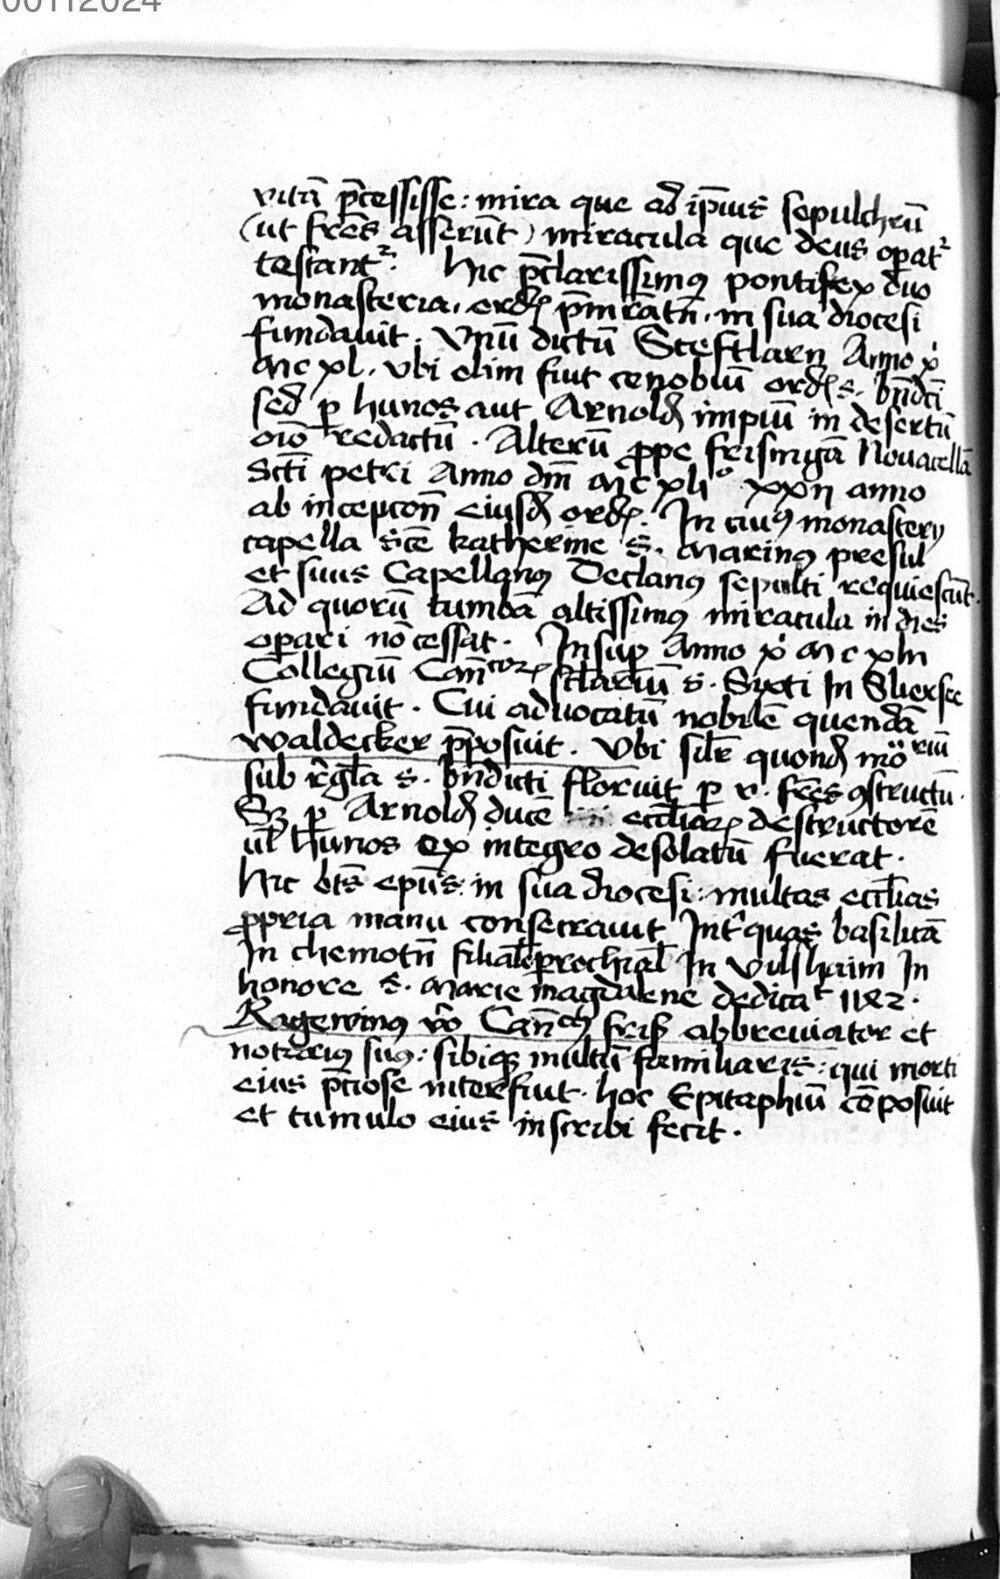 00112024
vitā p̄cessisse: mira que ad ip̄ius sepulchrū
(ut fr̄es asserūt) miracula que deus operat᷑
testant᷑. Hic p̄clarissimꝰ pontifex duo
monasteria, ordīs p̄mr̄atn̄. in sua diocesi
fundauit. Vnū dictū Sceftlarn Anno xͥ
Mc xl. vbi olim fuit cenobiū ordīs s. bn̄dcī
sed ꝑ hunos aut Arnold̄ impiū in desertū
oīo redactū. Alterū ꝓpe frisingā Nouacellā
Sctī petri Anno dm̄ Mc xlıͦ xxıı anno
ab incepcon̄ eiusd̄ ordīs. In cuiꝰ monasterij
capella sc̄e katherine s. Marinꝰ presul
et suus Capellanꝰ Declanꝰ sepulti requiescūt.
Ad quorū tumbā altissimꝰ miracula in dies
operari nō cessat. Insuꝑ Anno xͥ Mc xlıı
Collegiū Can̄coꝝ sclariū s. Sixti In Sliersee
fundauit. Cui aduocatū nobilē quendā
waldecker p̄posuit. Vbi silr̄ quond̄ mōriū
sub rgl̄a s. bn̄dicti floruit ꝑ v. fr̄es ꝯstructū.
Sꝫ ꝑ Arnold̄ ducē eccl̄iaꝝ destructorē
ul̄ Hunos ex integro desolatū fuerat.
Hic bt̄s ep̄us in sua diocesi: multas eccl̄ias
ꝓpria manu consecrauit Int̄ quas basilicā
In chemotn̄ filialē parochial̄ In vilshaim In
honore s. Marie magdalene dedicat 1182.
Ragewinꝰ v̄o Can̄cꝰ fris̄ abbreuiator et
notariꝰ suꝰ: sibiqꝫ multū familiaris: qui morti
eius p̄ciose interfuit. hoc Epitaphiū cōposuit
et tumulo eius inscribi fecit.